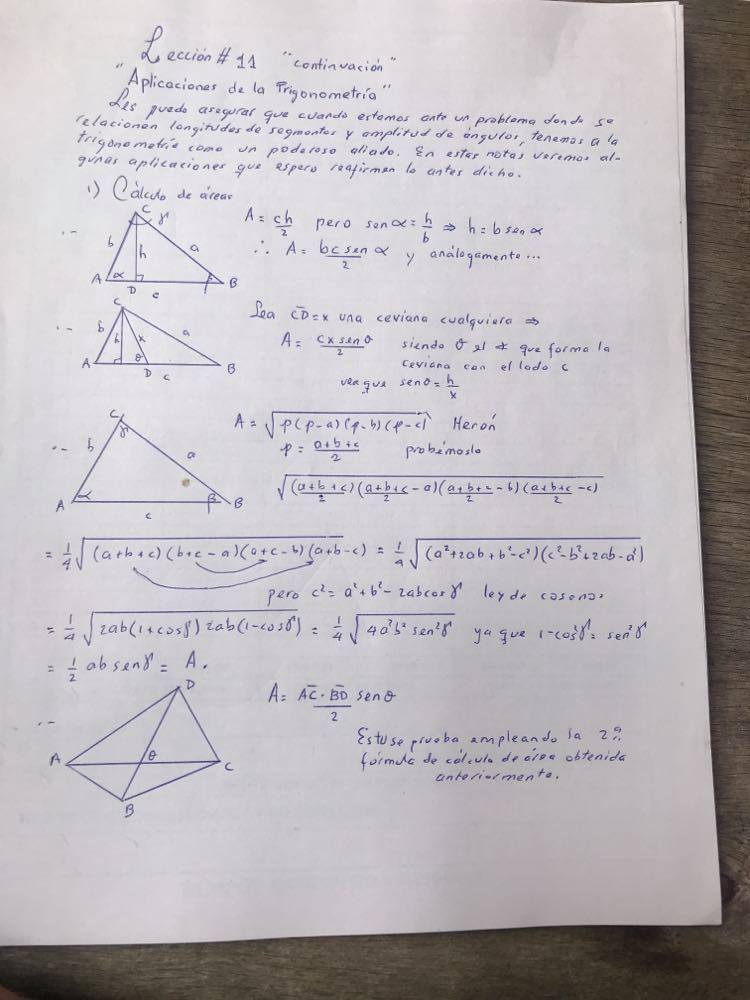 Lección # 11 "continuación"
"Aplicaciones de la Trigonometría"
Les puedo asegurar que cuando estemos ante un problema donde se
relacionen longitudes de segmentos y amplitud de ángulos, tenemos a la
trigonometría como un poderoso aliado. En estas notas veremos al-
gunas aplicaciones que espero reafirmen lo antes dicho.
1) Cálculo de áreas
C γ b h a A α D c β B
A = ch/2 pero senα = h/b ⇒ h = b senα
∴ A = bc senα/2 y análogamente...
C b h x a A θ D c B
Sea CD = x una ceviana cualquiera ⇒
A = cx senθ/2 siendo θ el ∢ que forma la
ceviana con el lado c
vea que senθ = h/x
C γ b a A α β B c
A = √(p(p-a)(p-b)(p-c)) Herón
p = (a+b+c)/2 probémoslo
√((a+b+c)/2 ((a+b+c)/2 - a)((a+b+c)/2 - b)((a+b+c)/2 - c))
= 1/4 √((a+b+c)(b+c-a)(a+c-b)(a+b-c)) = 1/4 √((a²+2ab+b²-c²)(c²-b²+2ab-a²))
pero c² = a²+b²-2abcosγ ley de cosenos
= 1/4 √(2ab(1+cosγ) 2ab(1-cosγ)) = 1/4 √(4a²b² sen²γ) ya que 1-cos²γ = sen²γ
= 1/2 ab senγ = A.
D A θ C B
A = AC · BD senθ/2
Esto se prueba empleando la 2ª
fórmula de cálculo de área obtenida
anteriormente.